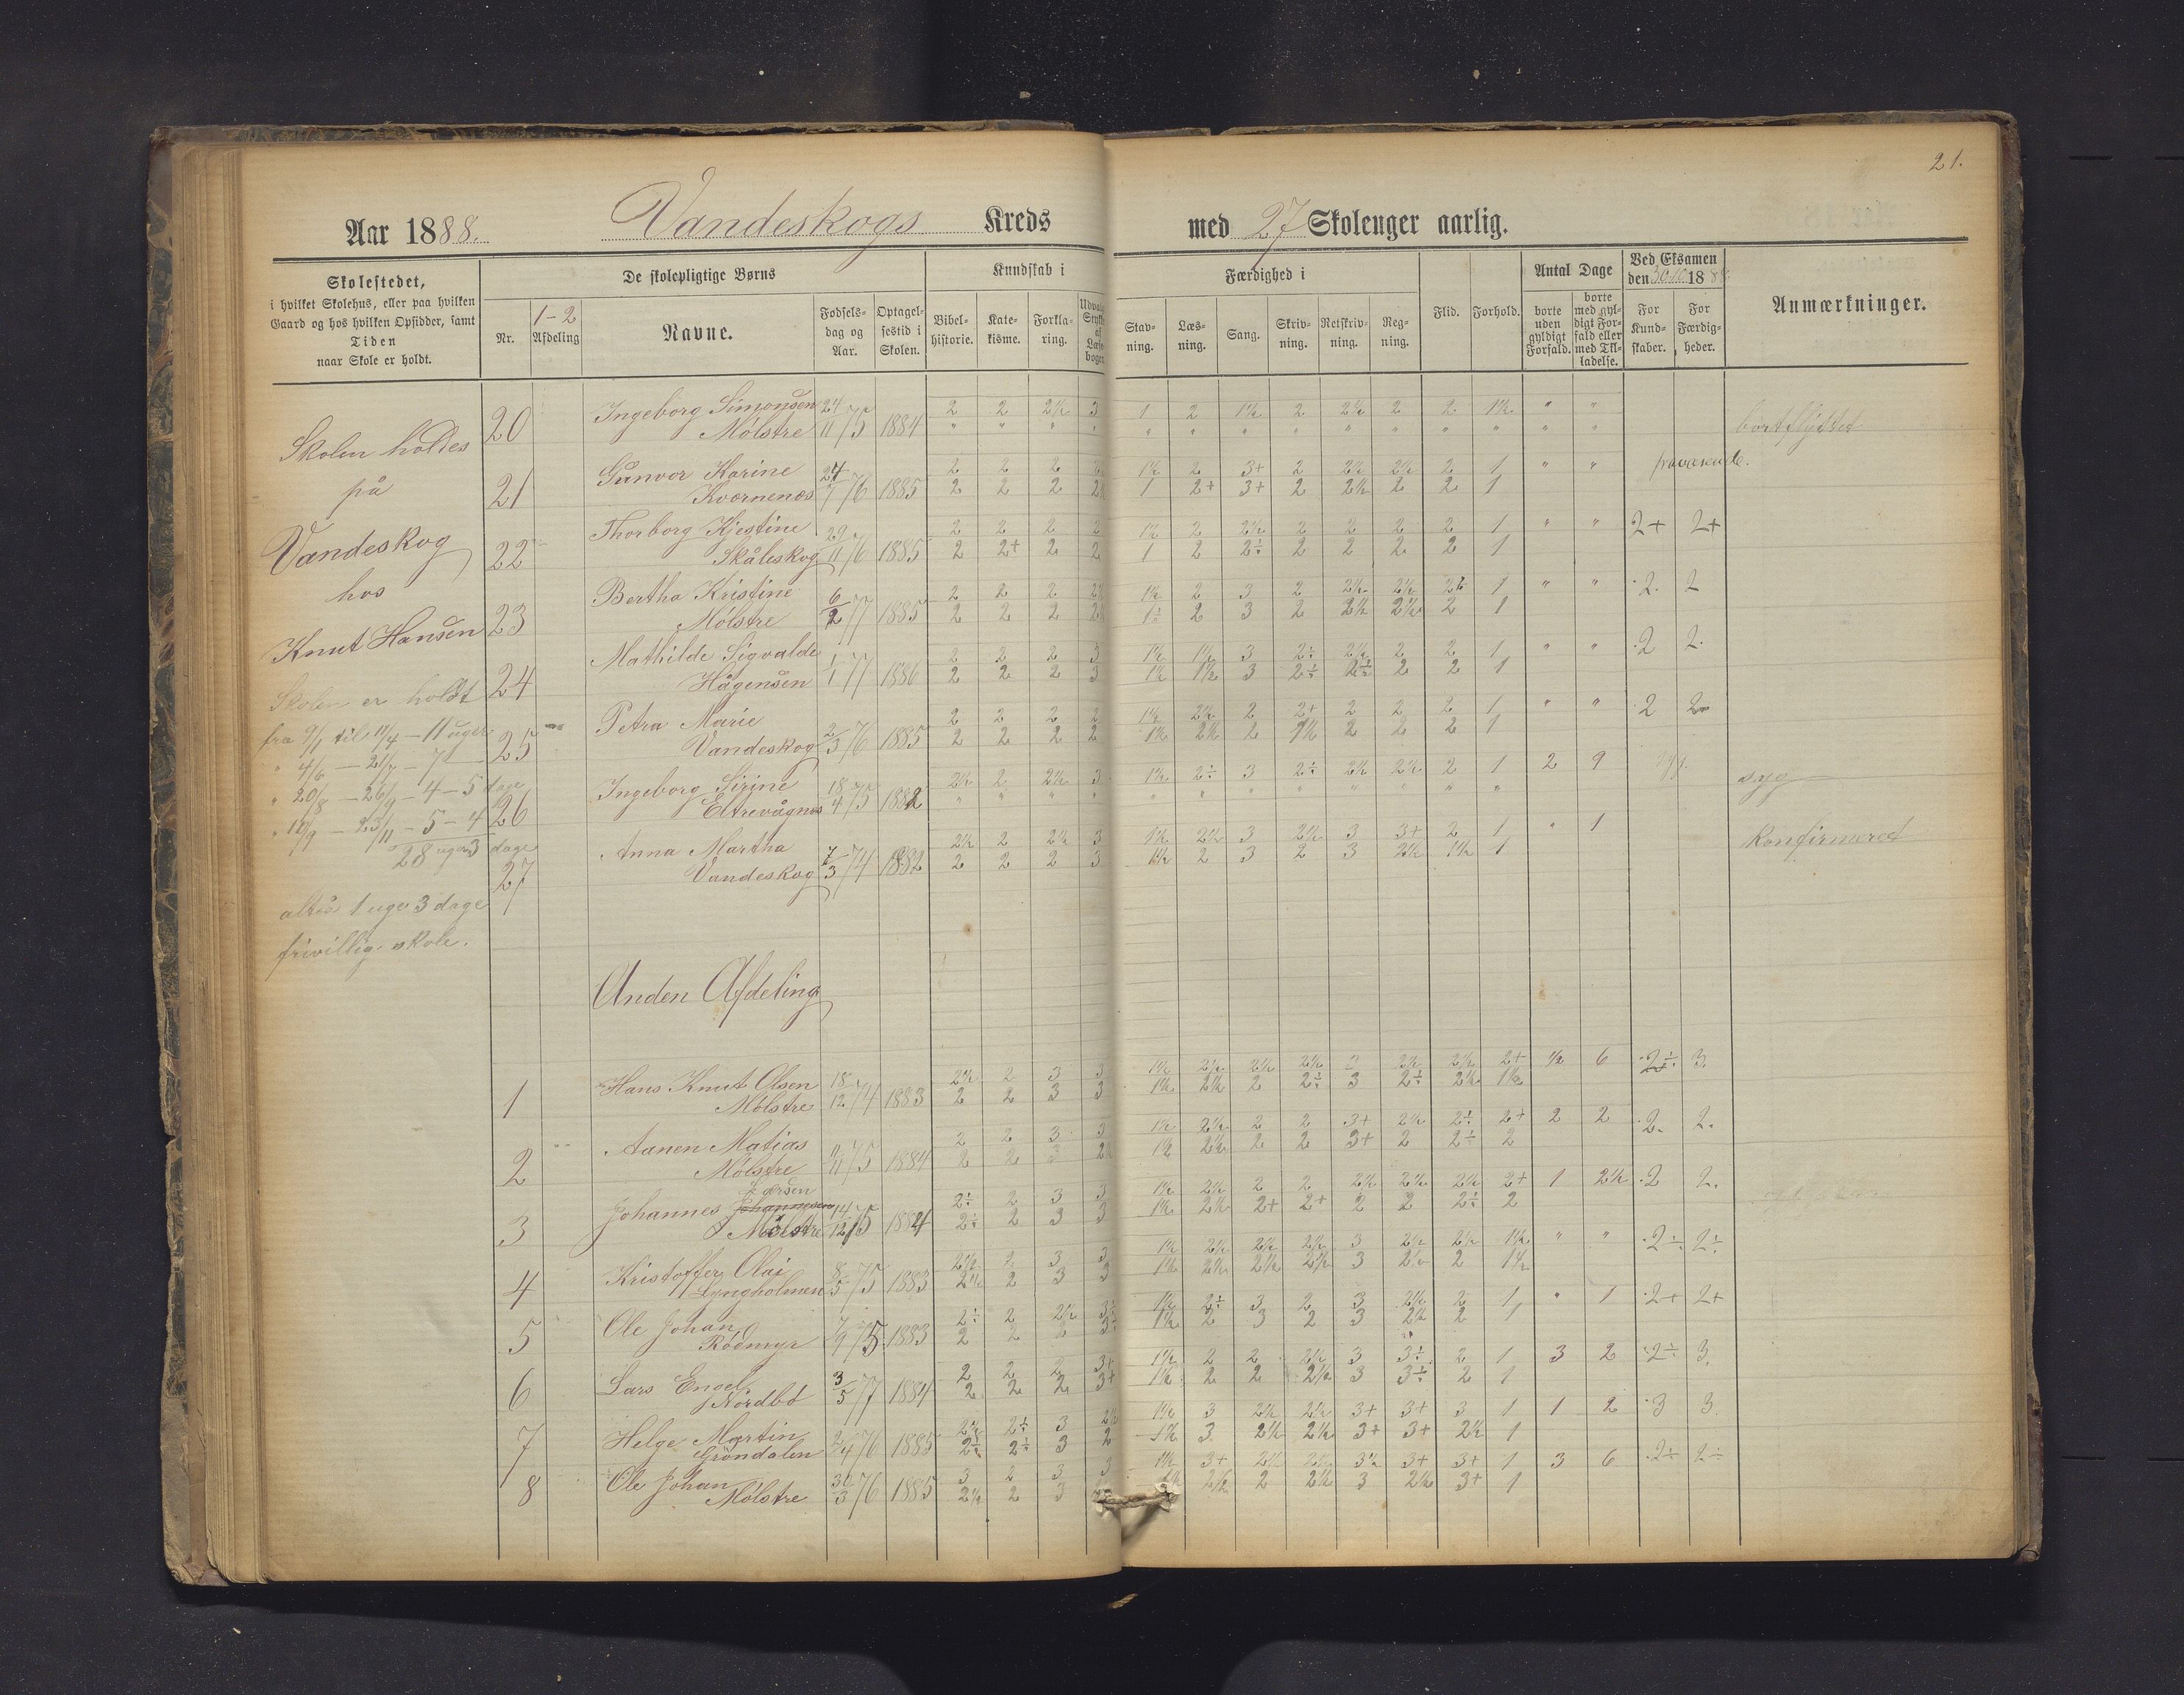 21.
Aar 1888. Vandeskogs Kreds med 27 Skoleuger aarlig.
Skolestedet,
i hvilket Skolehus, eller paa hvilken
Gaard og hos hvilken Opsidder, samt
Tiden
naar Skole er holdt.
De skolepligtige Børns
Nr.
1-2
Afdeling
Navne.
Fødsels-
dag og
Aar.
Optagel-
sestid i
Skolen.
Kundskab i
Bibel-
historie.
Kate-
kisme.
Forkla-
ring.
Udvalgte
Stykker
af
Læse-
bogen
Færdighed i
Stav-
ning.
Læs-
ning.
Sang.
Skriv-
ning.
Retskriv-
ning.
Reg-
ning.
Flid.
Forhold.
Antal Dage
borte
uden
gyldigt
Forfald.
borte
med gyl-
digt For-
fald eller
med Til-
ladelse.
Ved Eksamen
den 30/11 1888
For
Kund-
skaber.
For
Færdig-
heder.
Anmærkninger.
Skolen holdes
på
Vandeskog
hos
Knut Hansen
Skolen er holdt
fra 9/1 til 14/4 – 11 uger
" 4/6 – 21/7 – 7
" 20/8 – 26/9 – 4 – 5 dage
– 23/11 – 5 – 4
28 uger 3 dage
altså 1 uge 3 dage
frivillig skole.
20 Ingeborg Simonsen 24
Mølstre 11/75 1884
2 2 2½ 3 1 2 1½ 2 2½ 2 2 1½ " " bortflyttet
21 Gunvor Karine 24
Kvornenæs 7/76 1885
2 2 2 2 1½ 2 3+ 2 2½ 2½ 2 1 " " fraværende.
2 2 2 2½ 1 2+ 3+ 2 2½ 2 2 1
22 Thorborg Kjestine 29
Skåleskog 11/76 1885
2 2 2 2 1½ 2 2½ 2 2 2 2 1 " " 2+ 2+
2 2+ 2 2 1 2 2÷ 2 2 2 2 1
23 Bertha Kristine 6
Mølstre 2/77 1885
2 2 2 2½ 1½ 2 3 2 2½ 2½ 2½ 1 " " 2. 2
2 2 2 2½ 1÷ 2 3 2 2½ 2½ 2 1
24 Mathilde Sigvalde 1
Hågensen 1/77 1886
2 2 2 3 1½ 1½ 3 2÷ 2½ 2 2 1 " " 2 2.
2 2 2 3 1½ 1½ 3 2÷ 2÷ 2 2 1
25 Petra Marie 2
Vandeskog 3/76 1885
2 2 2 2 1½ 2½ 2 2+ 2 2 2 1 " " 2 2
2 2 2 2 1½ 2½ 2 1½ 2 2 2 1
26 Ingeborg Sirine 18
Eltrevågnes 4/75 1882
2½ 2 2½ 3 1½ 2÷ 3 2÷ 2½ 2½ 2 1 2 9 syg
27 Anna Martha 7
Vandeskog 3/74 1882
2½ 2 2½ 3 1½ 2½ 3 2½ 3 3+ 2 1 " 1 Konfirmeret
2 2 2 3 1½ 2 3 2 3 2½ 1½ 1
Anden Afdeling
1 Hans Knut Olsen 18
Mølstre 12/74 1883
2½ 2 3 3 1½ 2½ 2½ 2½ 2 2½ 2½ 2+ ½ 6 2÷ 3.
2 2 3 3 1½ 2½ 2 2÷ 3 2÷ 2½ 1½
2 Aanen Matias 11
Mølstre 11/75 1884
2 2 3 3 1½ 2½ 2 2 3+ 2½ 2÷ 2+ 2 2 2. 2.
2 2 3 2½ 1½ 2½ 2 2 3+ 2 2÷ 2
3 Johannes Johannesen 14
Mølstre 12/75 1884
2÷ 2 3 3 1½ 2½ 2 2 2½ 2½ 2½ 2+ 1 2½ 2 2.
2÷ 2 3 3 1½ 2½ 2+ 2+ 2 2 2÷ 2
4 Kristoffer Olai 8
Lyngholmen 5/75 1883
2½ 2 3 3 1½ 2½ 2½ 2½ 3 2½ 2½ 1½ " " 2÷ 2÷
2½ 2 3 3 1½ 2½ 2½ 2½ 3 2½ 2 1½
5 Ole Johan 7
Rødmyr 9/75 1883
2÷ 2 2½ 3÷ 1½ 2÷ 3 2 3 2½ 2 1 " 1 2+ 2+
2 2 2 3÷ 1½ 2 3 2 3 2½ 2 1
6 Lars Engel 3
Nordbø 5/77 1884
2 2 2 3+ 1½ 2 2 2½ 3 3÷ 2 1 3 2 2÷ 3.
2 2 2 3+ 1½ 2 2 2½ 3 3÷ 2 1
7 Helge Martin 2
Grøndalen 4/76 1885
2½ 2÷ 3 2½ 1½ 3 2½ 2½ 3+ 3+ 3 1 1 2 3 3.
2÷ 2÷ 3 2 1½ 3 2½ 2½ 3+ 3+ 2½ 1
8 Ole Johan 30
Mølstre 3/76 1885
3 2 3 3 1½ 3+ 2½ 2½ 3½ 3+ 3+ 1 3 6 2÷ 2÷
2½ 2 3 2½ 2 2½ 3 2½ 3+ 1